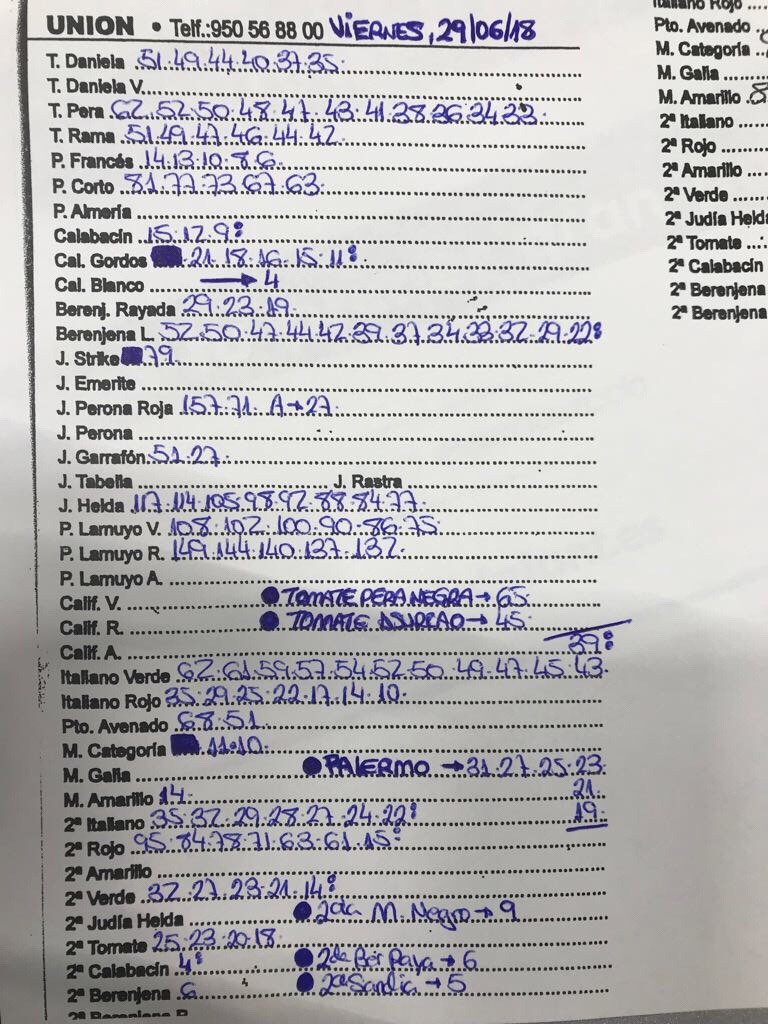 UNION • Telf.:950 56 88 00 VIERNES, 29/06/18
T. Daniela 51.49.44.40.37.35.
T. Daniela V.
T. Pera 62.52.50.48.47.43.41.38.36.34.33.
T. Rama 51.49.47.46.44.42.
P. Francés 14.13.10.8.6.
P. Corto 81.77.73.67.63.
P. Almería
Calabacín 15.12.9:
Cal. Gordos 21.18.16.15.11:
Cal. Blanco → 4
Berenj. Rayada 29.23.19.
Berenjena L. 52.50.47.44.42.39.37.34.33.32.29.22:
J. Strike 79.
J. Emerite
J. Perona Roja 157.71. A→27.
J. Perona
J. Garrafón 51.27.
J. Tabella J. Rastra
J. Helda 117.114.105.98.92.88.84.77.
P. Lamuyo V. 108.102.100.90.86.75
P. Lamuyo R. 149.144.140.137.132.
P. Lamuyo A.
Calif. V. ● TOMATE PERA NEGRA → 65.
Calif. R. ● TOMATE ASURCAO → 45.
Calif. A. 39:
Italiano Verde 62.61.59.57.54.52.50.49.47.45.43.
Italiano Rojo 35.29.25.22.17.14.10.
Pto. Avenado 68.51.
M. Categoría 11.10.
M. Galia ● PALERMO → 31.27.25.23.
M. Amarillo 14. 21.
2ª Italiano 35.32.29.28.27.24.22: 19.
2ª Rojo 95.84.78.71.63.61.15:
2ª Amarillo
2ª Verde 32.27.23.21.14:
2ª Judía Helda ● 2da M. Negro → 9
2ª Tomate 25.23.20.18.
2ª Calabacín 4: ● 2da Ber Raya → 6
2ª Berenjena 6 ● 2ª Sandia → 5
Italiano Rojo
Pto. Avenado
M. Categoría
M. Galia
M. Amarillo 8
2ª Italiano
2ª Rojo
2ª Amarillo
2ª Verde
2ª Judía Helda
2ª Tomate
2ª Calabacín
2ª Berenjena
2ª Berenjena